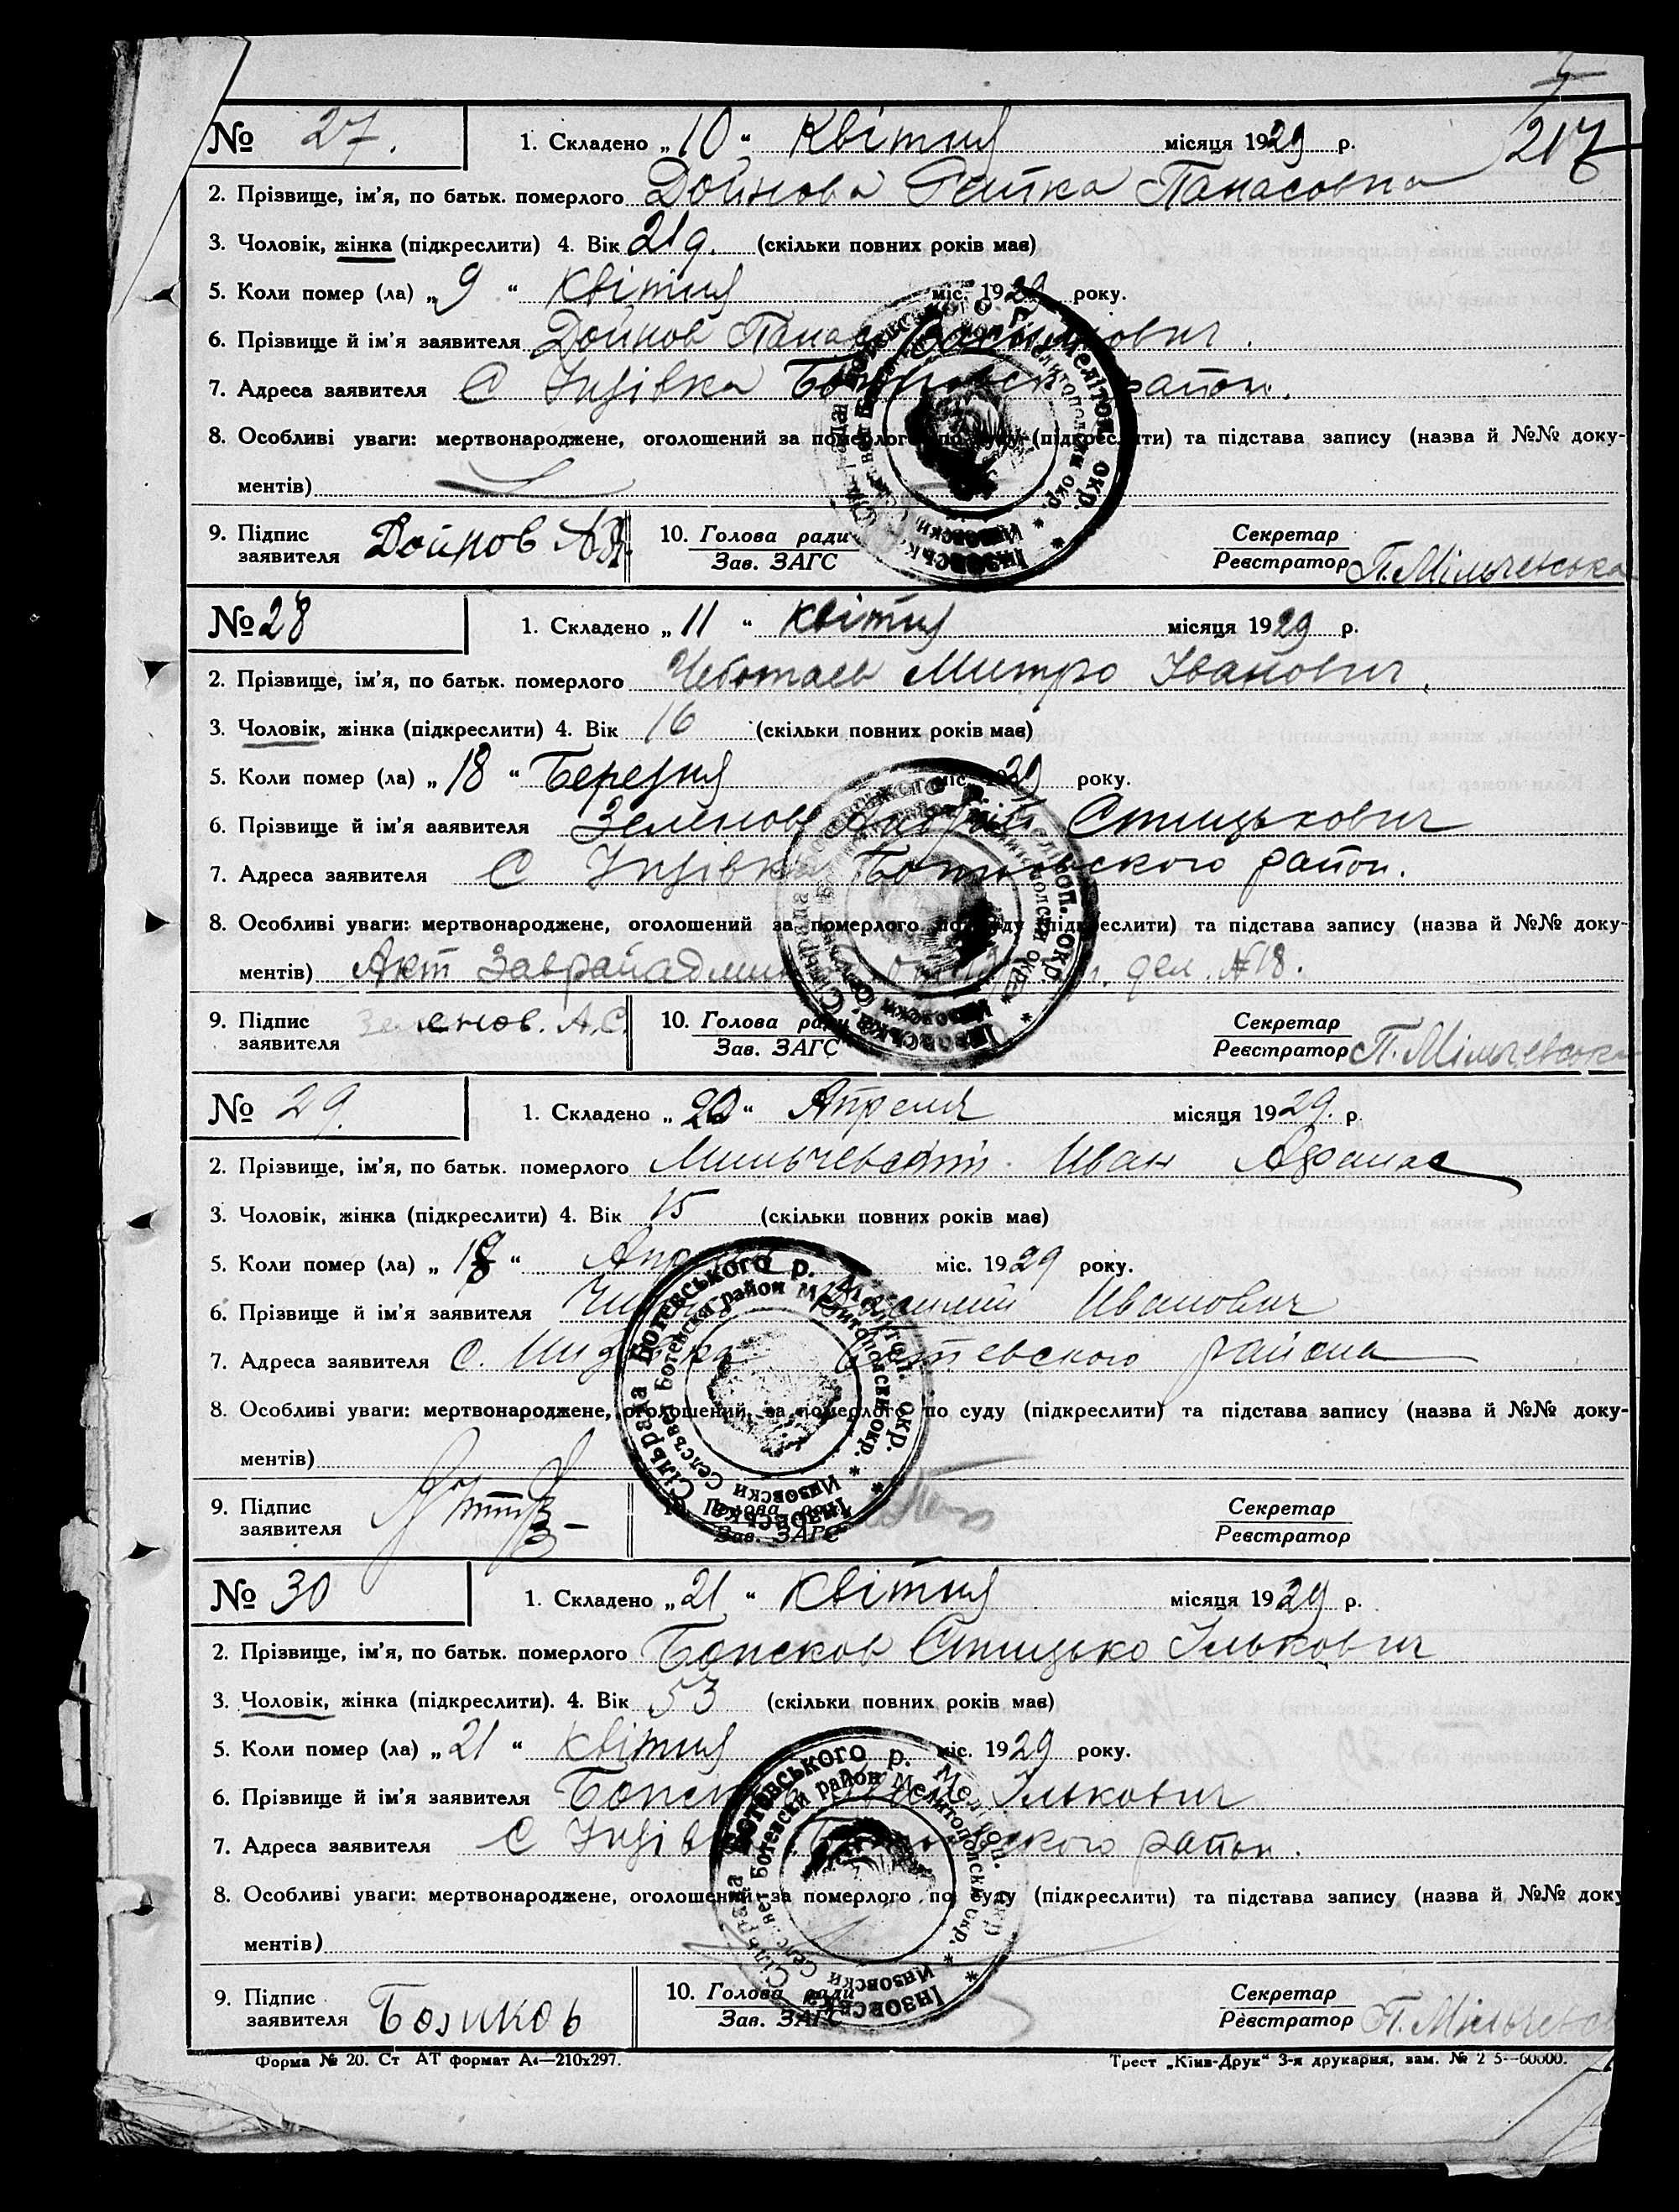 217
№ 27. 1. Складено „10“ Квітня місяця 1929 р.
2. Прізвище, ім’я, по батьк. померлого Дойнова Панасовна
3. Чоловік, жінка (підкреслити) 4. Вік 21 (скільки повних років має)
5. Коли помер (ла) „9“ Квітня міс. 1929 року.
6. Прізвище й ім’я заявителя Дойнов Панас
7. Адреса заявителя С Інзівка район.
8. Особливі уваги: мертвонароджене, оголошений за померлого по суду (підкреслити) та підстава запису (назва й №№ доку-
ментів)
9. Підпис заявителя Дойнов 10. Голова ради Секретар
Зав. ЗАГС Реєстратор П. Мільчевська
№ 28 1. Складено „11“ Квітня місяця 1929 р.
2. Прізвище, ім’я, по батьк. померлого Чеботаев Митро Іванович.
3. Чоловік, жінка (підкреслити) 4. Вік 16 (скільки повних років має)
5. Коли помер (ла) „18“ Березня міс. 1929 року.
6. Прізвище й ім’я заявителя Зеленов Стицькович
7. Адреса заявителя С Інзівка Ботьевского район.
8. Особливі уваги: мертвонароджене, оголошений за померлого по суду (підкреслити) та підстава запису (назва й №№ доку-
ментів) Акт дел. №18.
9. Підпис заявителя Зеленов. А.С. 10. Голова ради Секретар
Зав. ЗАГС Реєстратор П. Мільчевська
№ 29. 1. Складено „20“ Апреля місяця 1929. р
2. Прізвище, ім’я, по батьк. померлого Мильчевский Иван Афанас
3. Чоловік, жінка (підкреслити) 4. Вік 15 (скільки повних років має)
5. Коли помер (ла) „18“ Апреля міс. 1929 року.
6. Прізвище й ім’я заявителя Иванович
7. Адреса заявителя С. Инзовка Ботевского района
8. Особливі уваги: мертвонароджене, оголошений за померлого по суду (підкреслити) та підстава запису (назва й №№ доку-
ментів)
9. Підпис заявителя Голова ради Секретар
Зав. ЗАГС Реєстратор
№ 30 1. Складено „21“ Квітня місяця 1929 р.
2. Прізвище, ім’я, по батьк. померлого Стицько Ількович
3. Чоловік, жінка (підкреслити). 4. Вік 53 (скільки повних років має)
5. Коли помер (ла) „21“ Квітня міс. 1929 року.
6. Прізвище й ім’я заявителя Ількович
7. Адреса заявителя С Інзівка район.
8. Особливі уваги: мертвонароджене, оголошений за померлого по суду (підкреслити) та підстава запису (назва й №№ доку
ментів)
9. Підпис заявителя 10. Голова ради Секретар
Зав. ЗАГС Реєстратор П. Мільчевс
Форма № 20. Ст АТ формат А4—210х297. Трест „Київ-Друк“ 3-я друкарня, зам. № 2 5—60000.
Інзовська Сільрада Ботевського р. Мелітоп. окр.
Инзовски Селсъвет Ботевски район Мелитополски окр.